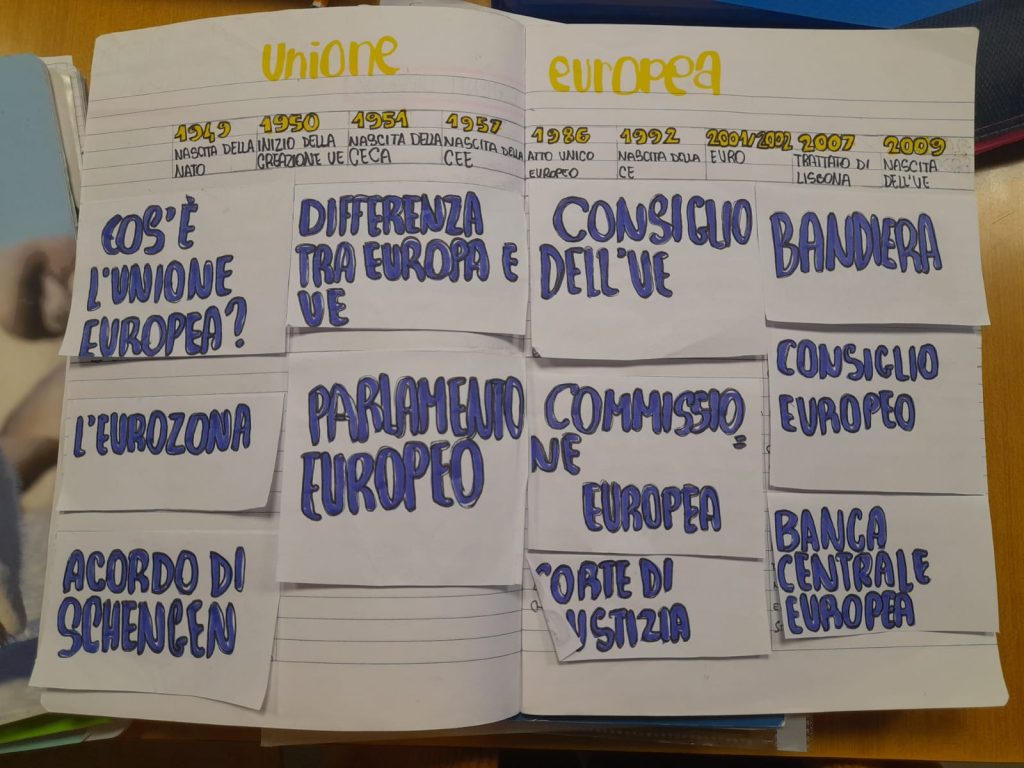 Unione europea
1949
NASCITA DELLA
NATO
1950
INIZIO DELLA
CREAZIONE UE
1951
NASCITA DELLA
CECA
1957
NASCITA DELLA
CEE
1986
ATTO UNICO
EUROPEO
1992
NASCITA DELLA
CE
2001/2002
EURO
2007
TRATTATO DI
LISBONA
2009
NASCITA
DELL'UE
COS'È
L'UNIONE
EUROPEA?
DIFFERENZA
TRA EUROPA E
UE
CONSIGLIO
DELL'UE
BANDIERA
L'EUROZONA
PARLAMENTO
EUROPEO
COMMISSIO=
NE
EUROPEA
CONSIGLIO
EUROPEO
ACORDO DI
SCHENGEN
ORTE DI
USTIZIA
BANCA
CENTRALE
EUROPEA